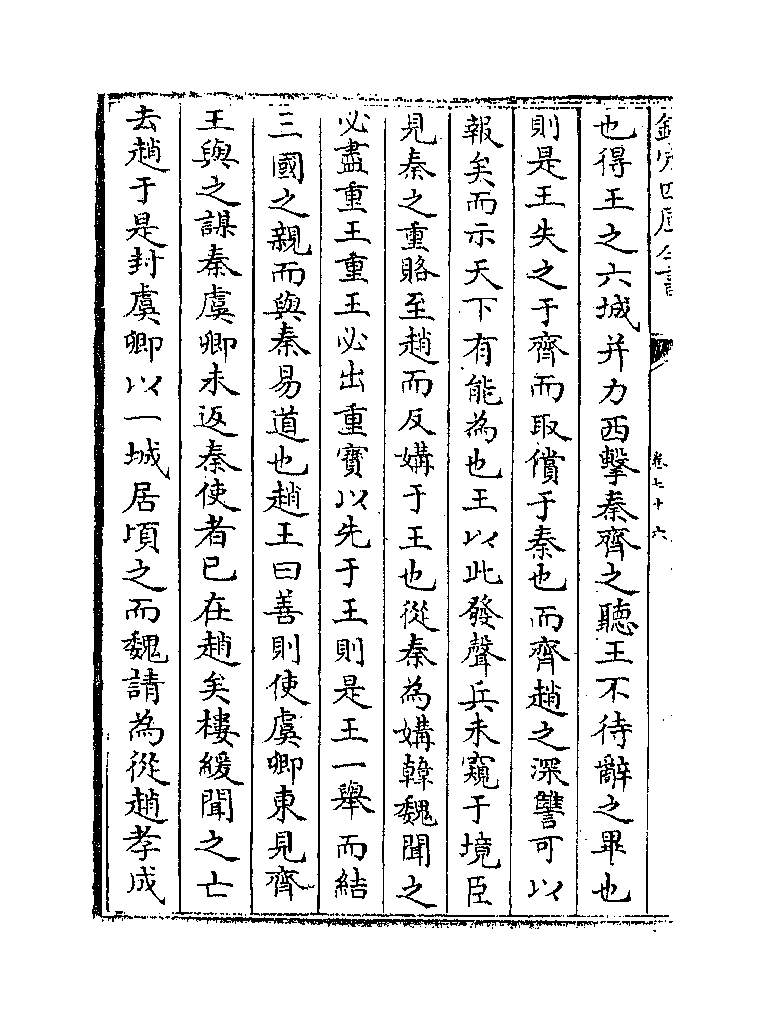 欽定四庫全書
卷七十六
也得王之六城并力西擊秦齊之聽王不待辭之畢也
則是王失之于齊而取償于秦也而齊趙之深讐可以
報矣而示天下有能為也王以此發聲兵未窺于境臣
見秦之重賂至趙而反媾于王也從秦為媾韓魏聞之
必盡重王重王必出重寳以先于王則是王一舉而結
三國之親而與秦易道也趙王曰善則使虞卿東見齊
王與之謀秦虞卿未返秦使者已在趙矣樓緩聞之亡
去趙于是封虞卿以一城居頃之而魏請為從趙孝成